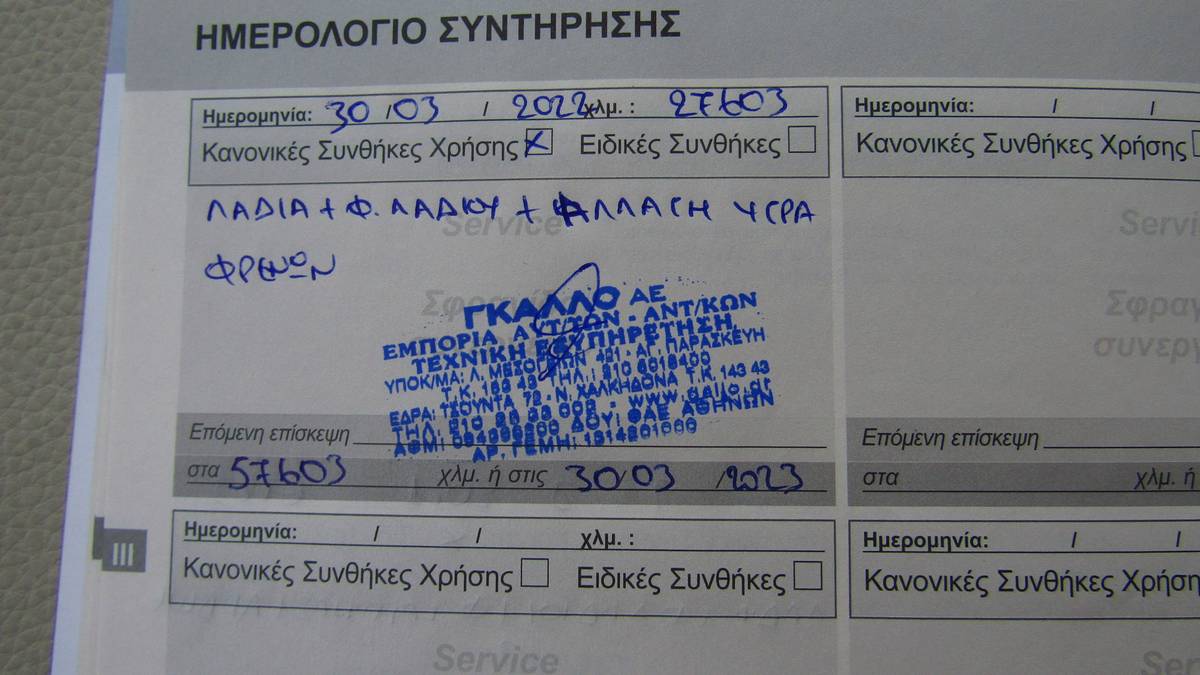 ΗΜΕΡΟΛΟΓΙΟ ΣΥΝΤΗΡΗΣΗΣ
Ημερομηνία: 30 / 03 / 2022 χλμ. : 27603
Κανονικές Συνθήκες Χρήσης X Ειδικές Συνθήκες
ΛΑΔΙΑ + Φ. ΛΑΔΙΟΥ + ΑΛΛΑΓΗ ΥΓΡΑ
ΦΡΕΝΩΝ
Service
ΓΚΑΛΛΟ ΑΕ
ΕΜΠΟΡΙΑ ΑΥΤ/ΤΩΝ - ΑΝΤ/ΚΩΝ
ΤΕΧΝΙΚΗ ΕΞΥΠΗΡΕΤΗΣΗ
ΥΠΟΚ/ΜΑ: Λ. ΜΕΣΟΓΕΙΩΝ 421 - ΑΓ. ΠΑΡΑΣΚΕΥΗ
Τ.Κ. 153 43 ΤΗΛ.: 210
ΕΔΡΑ: ΤΣΟΥΝΤΑ 72 - Ν. ΧΑΛΚΗΔΟΝΑ Τ.Κ. 143 43
ΤΗΛ: 210 - www.gallo.gr
ΑΦΜ: ΔΟΥ: ΦΑΕ ΑΘΗΝΩΝ
ΑΡ. ΓΕΜΗ:
Επόμενη επίσκεψη
στα 57603 χλμ. ή στις 30/03 /2023
Ημερομηνία: / / χλμ. :
Κανονικές Συνθήκες Χρήσης Ειδικές Συνθήκες
Service
III
Ημερομηνία: / /
Κανονικές Συνθήκες Χρήσης
Επόμενη επίσκεψη
στα χλμ. ή
Ημερομηνία: / /
Κανονικές Συνθήκες